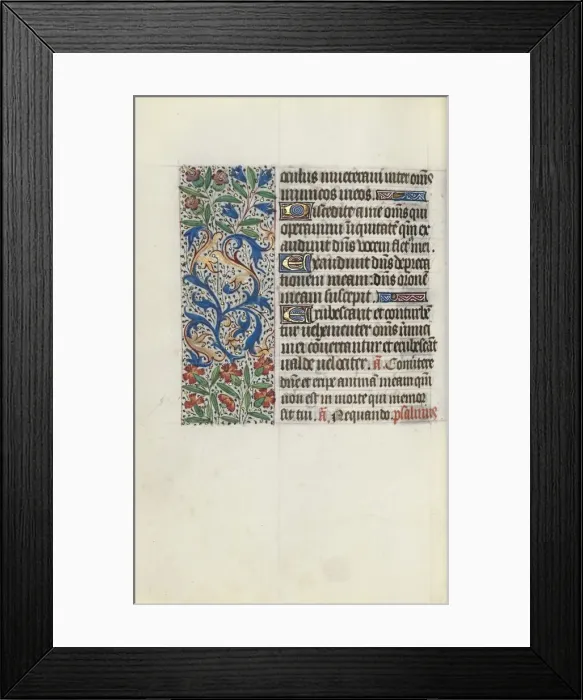 oculus meus inveteravi inter om̄s
inimicos meos.
Discedite a me om̄s qui
operamini iniquitatē qm̄ ex
audivit dn̄s vocem flet⁹ mei.
Exaudivit dn̄s depreca
tionem meam: dn̄s or̄onē
meam suscepit.
Erubescant et conturbē
tur vehementer om̄s inimi
mei convertantur et erubescāt
valde velociter. a͞. Convertere
dn̄e et eripe animā meam qm̄
non est in morte qui memor
sit tui. a͞. Nequando. psalmus